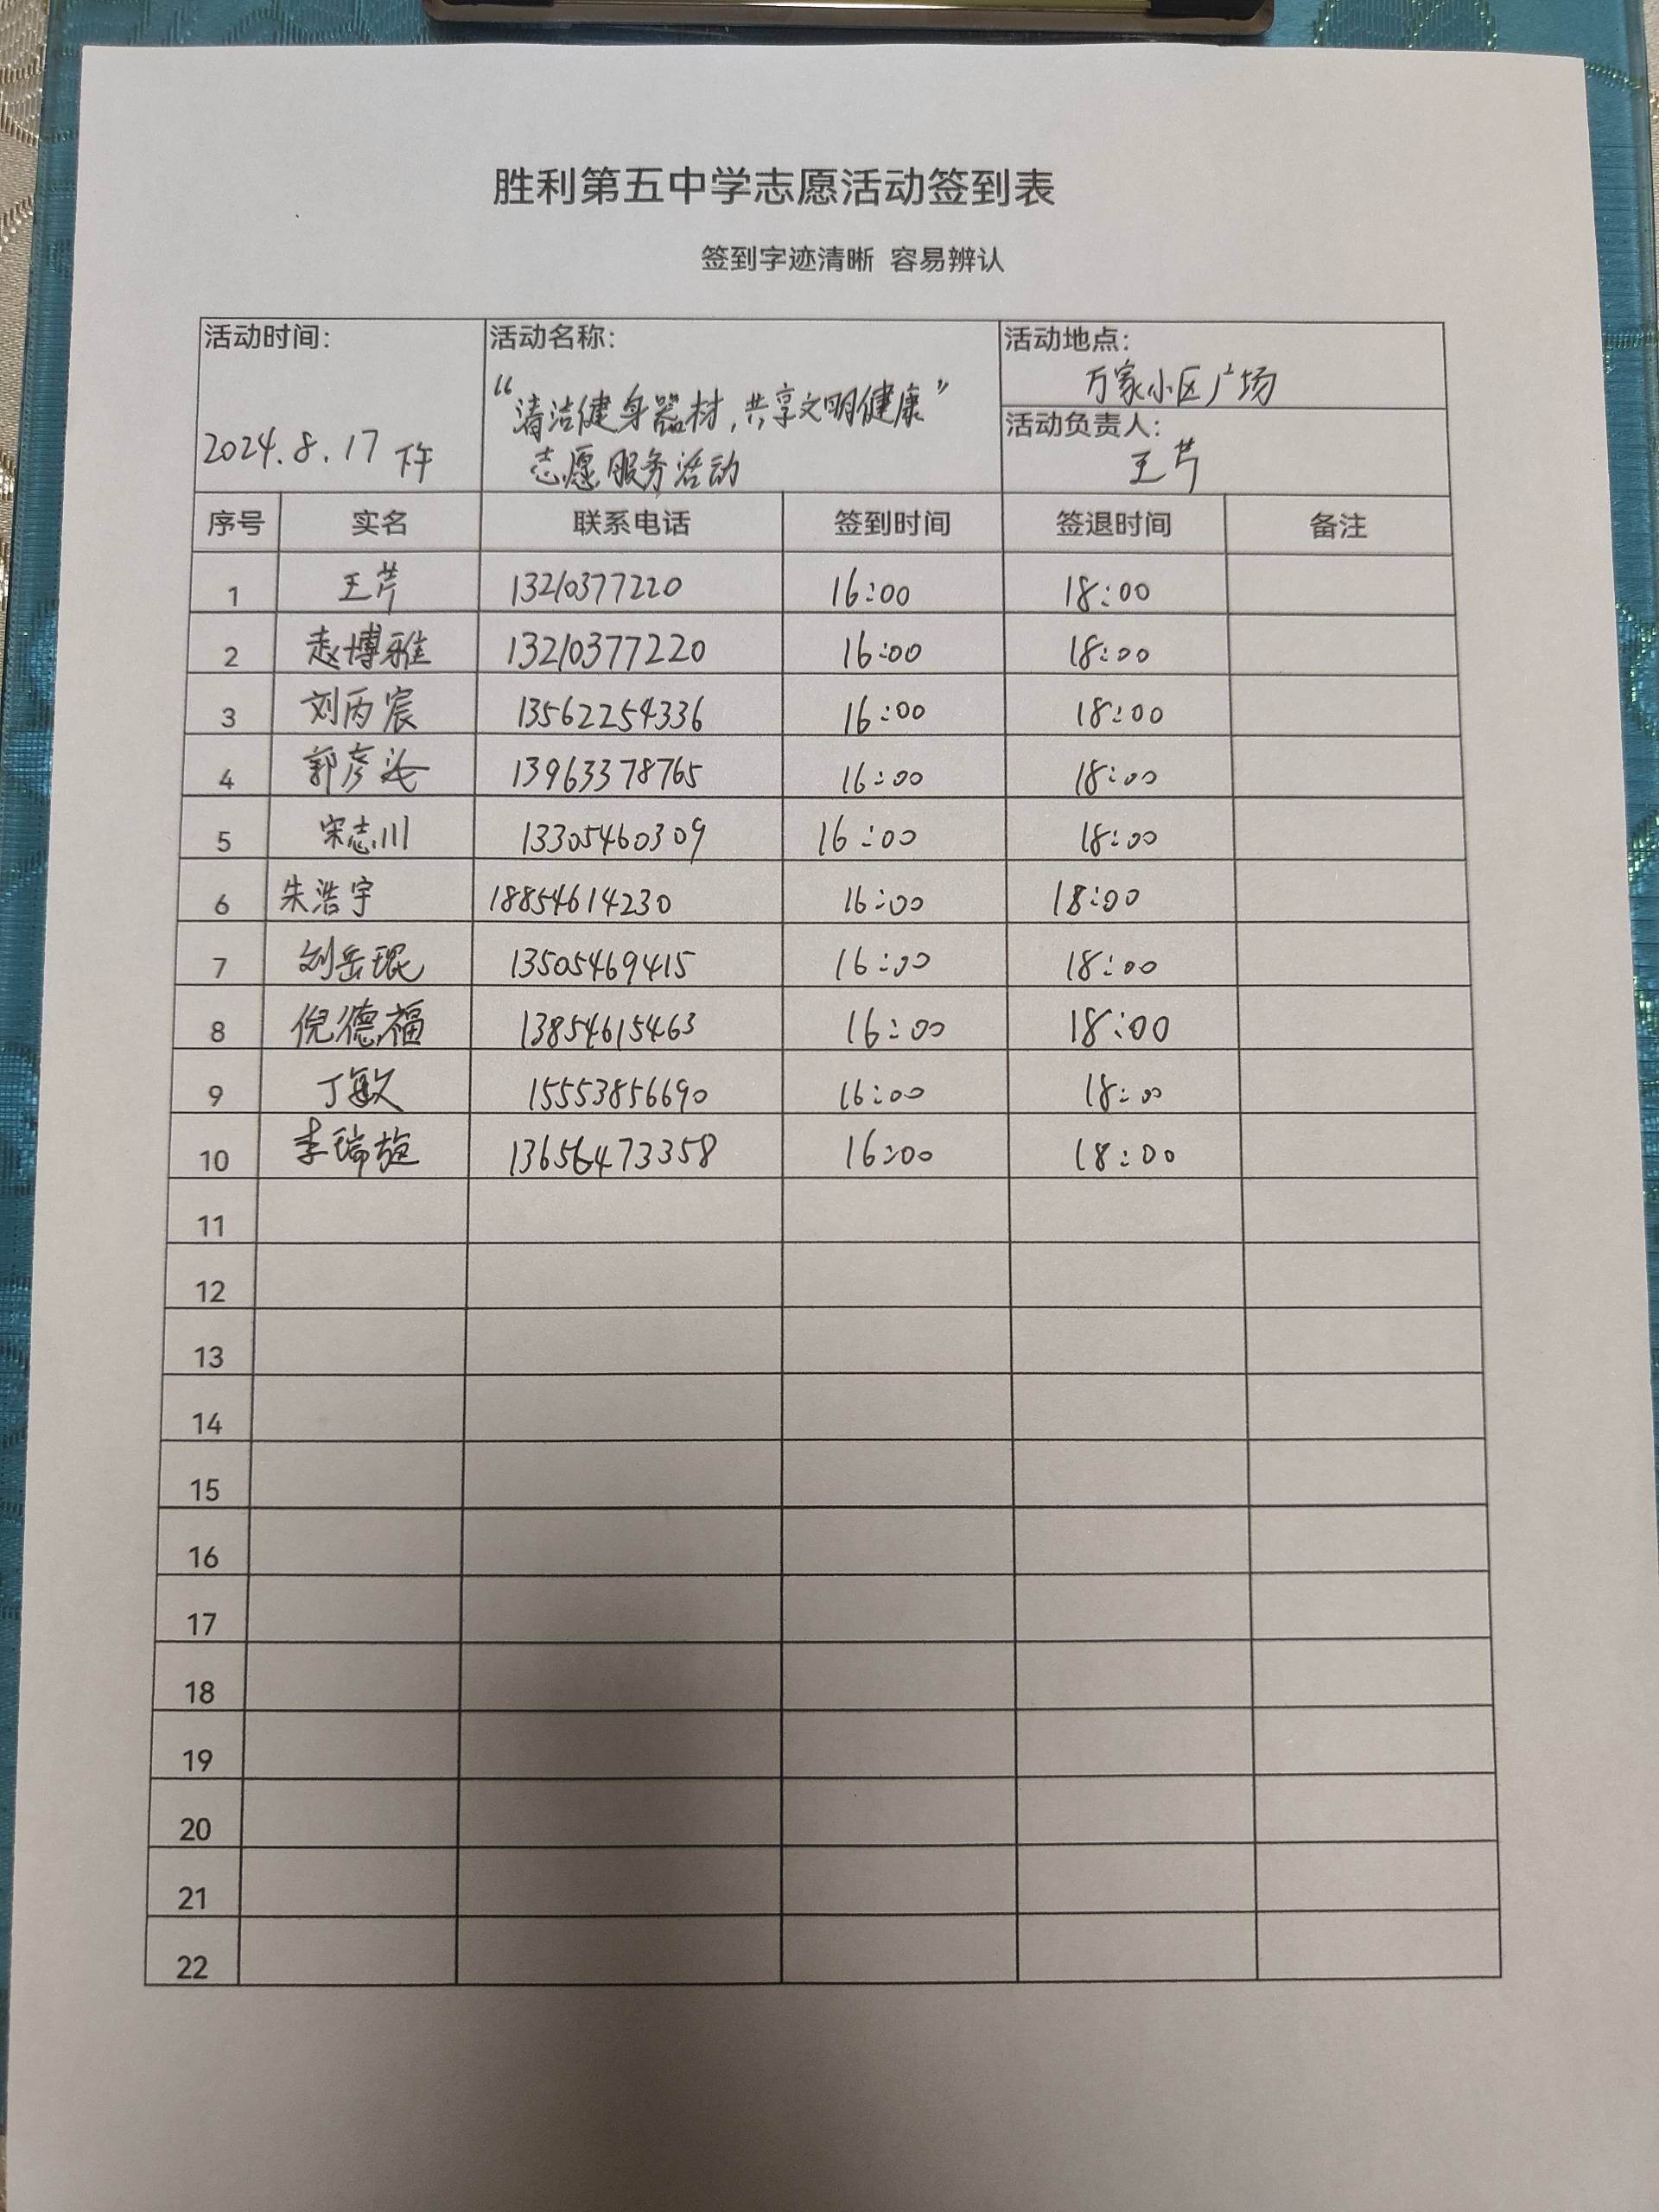 胜利第五中学志愿活动签到表
签到字迹清晰 容易辨认
活动时间：
2024.8.17 下午
活动名称：
“清洁健身器材，共享文明健康”
志愿服务活动
活动地点：
万家小区广场
活动负责人：
王芹
序号 实名 联系电话 签到时间 签退时间 备注
1 王芹 13210377220 16:00 18:00
2 赵博雅 13210377220 16:00 18:00
3 刘丙宸 13562254336 16:00 18:00
4 郭彦 13963378765 16:00 18:00
5 宋志川 13305460309 16:00 18:00
6 朱浩宇 18854614230 16:00 18:00
7 刘岳琨 13505469415 16:00 18:00
8 倪德福 13854615463 16:00 18:00
9 丁敏 15553856690 16:00 18:00
10 李瑞旋 13656473358 16:00 18:00
11
12
13
14
15
16
17
18
19
20
21
22